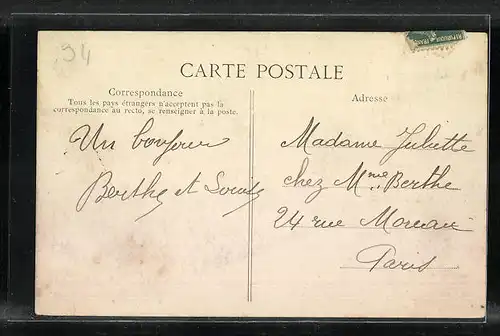 94
CARTE POSTALE
Correspondance
Tous les pays étrangers n'acceptent pas la
correspondance au recto, se renseigner à la poste.
Adresse
Un bonjour
Berthe et Louis
Madame Juliette
chez Mme Berthe
24 rue Moreau
Paris